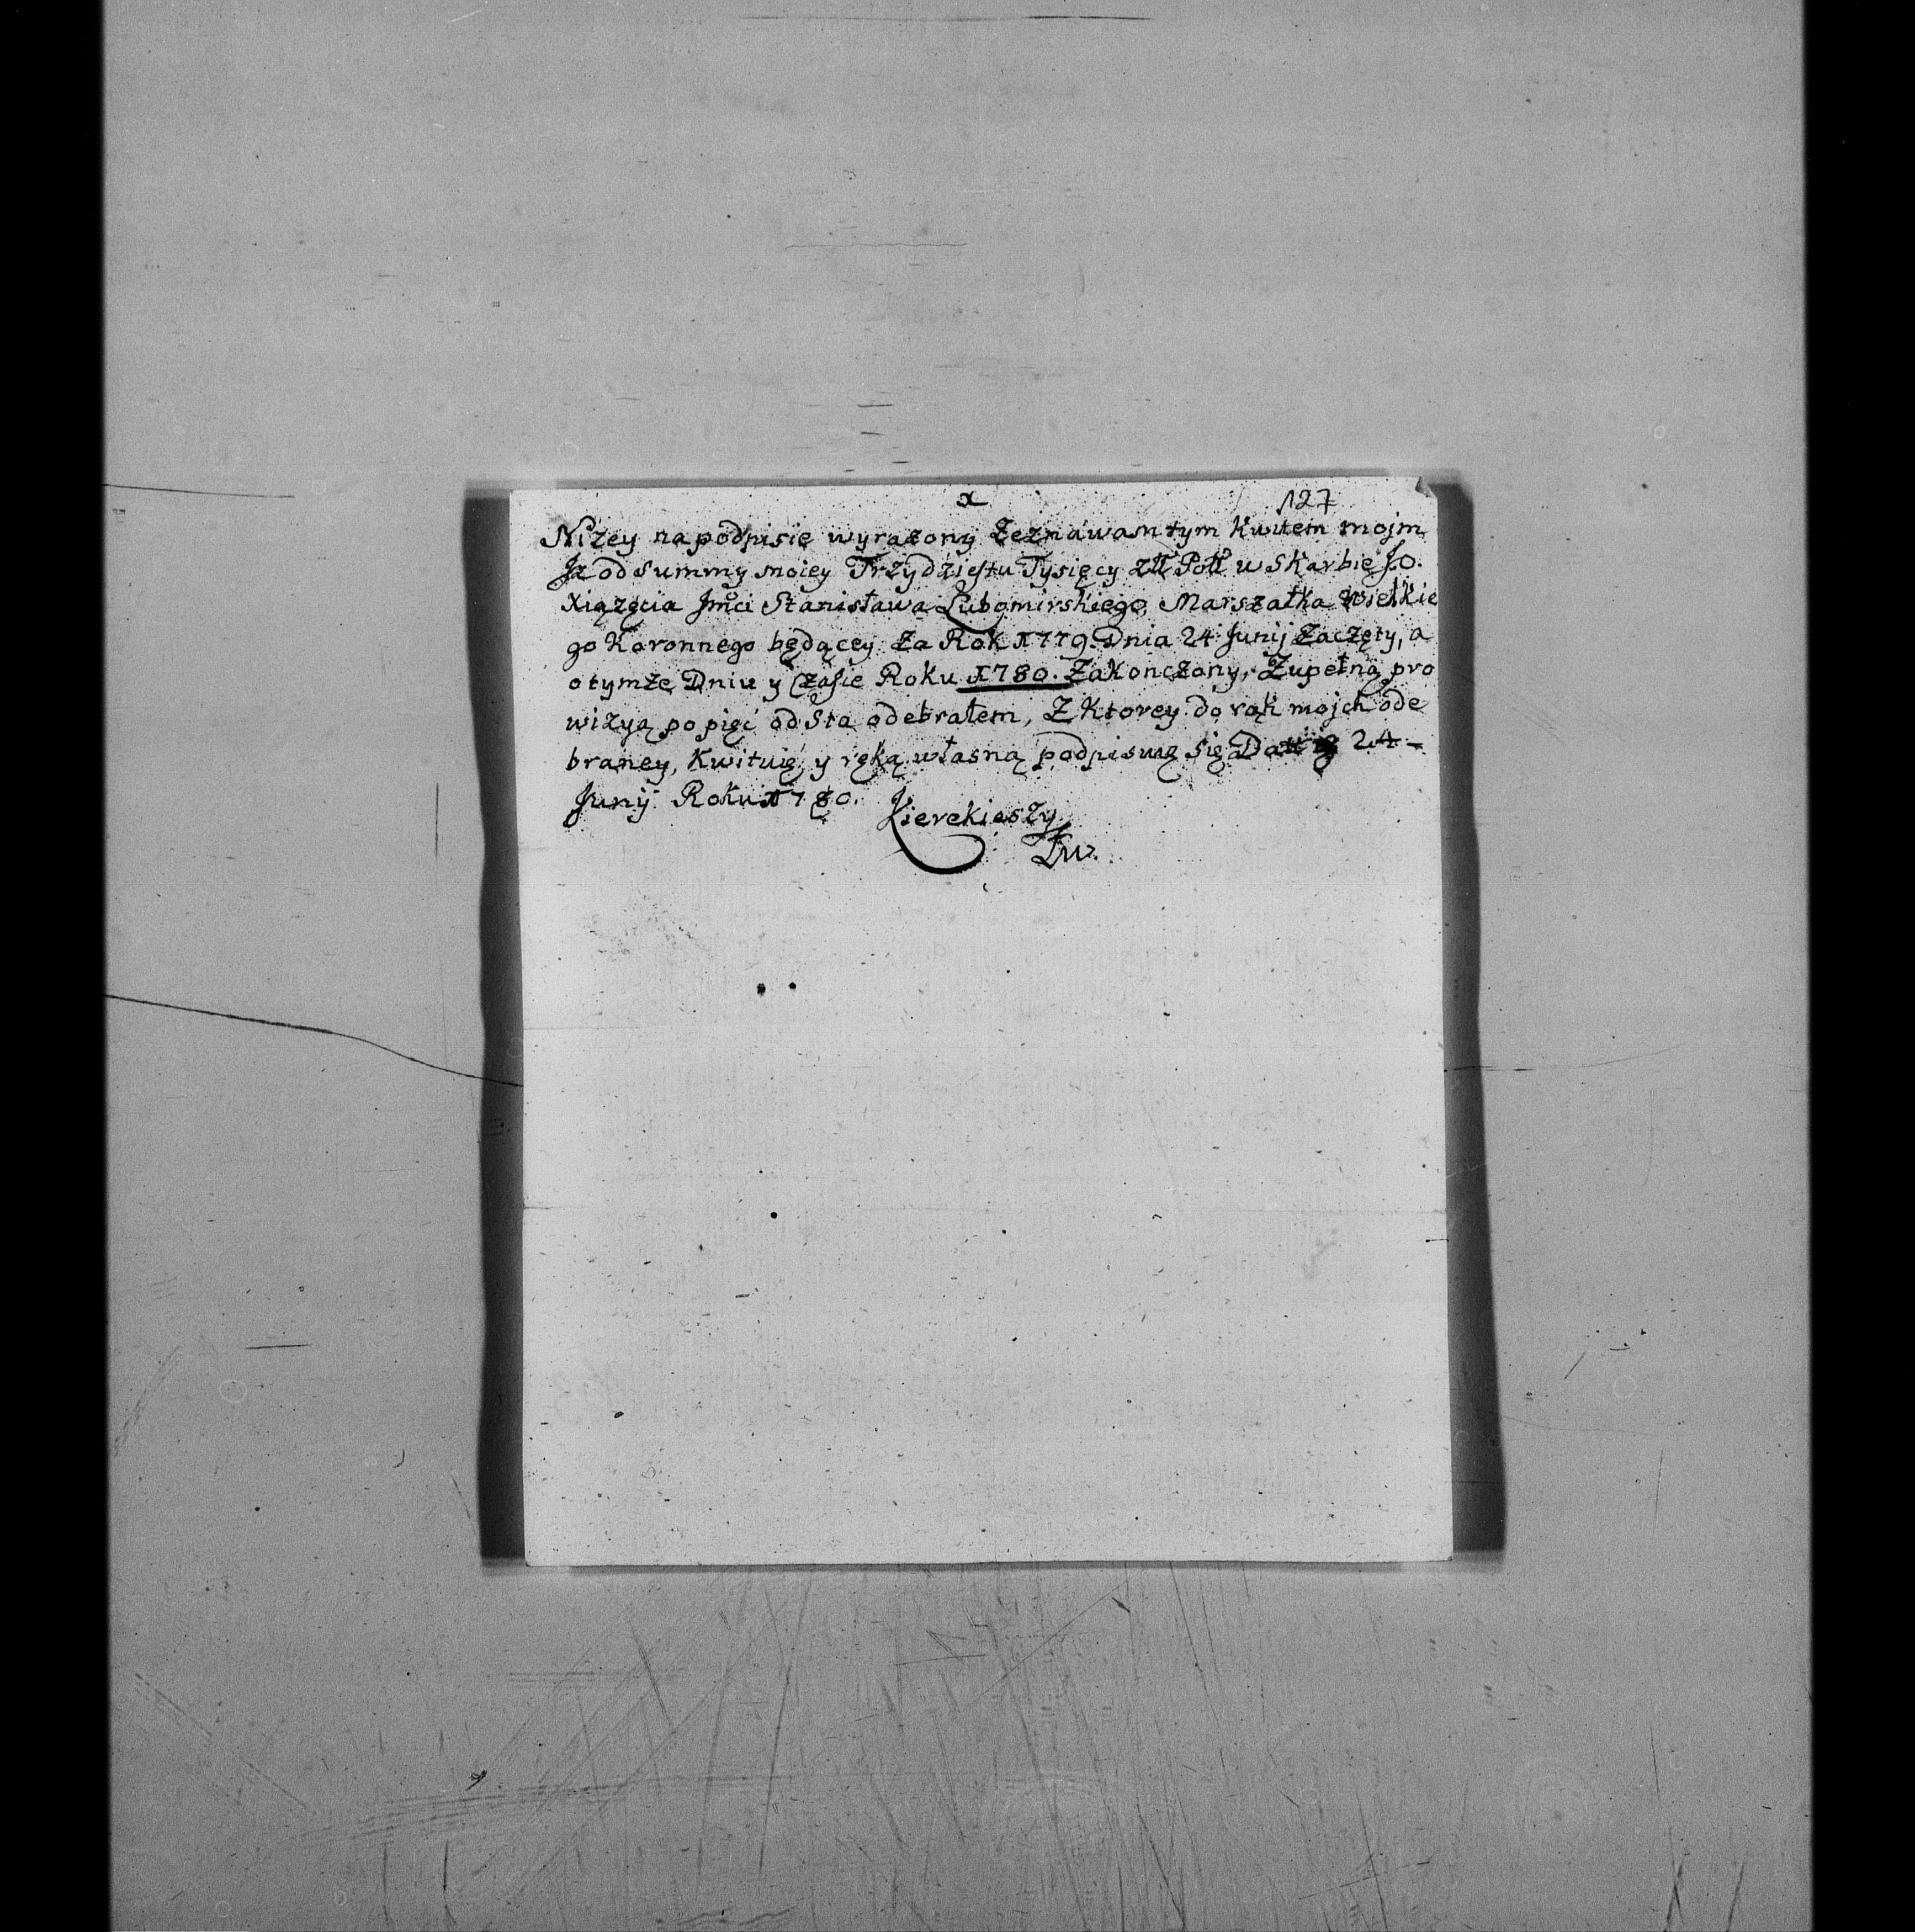 a 127
Nizey na podpisie wyrazony Zeznawam tym Kwitem mojm
Jz od Summy moiey Trzydziestu Tysięcy Złł Poll w Skarbie J.O.
Xiązęcia Jmci Stanisława Lubomirskiego Marszałka Wielkie
go Koronnego będącey Za Rok 1779. Dnia 24 Junij Zaczęty, a
o tymże Dniu y Czasie Roku 1780. Zakonczony, Zupełną pro
wizyą po pięć od Sta odebrałem, Z Ktorey do rąk mojch ode
braney, Kwituię y ręką własną podpisuię Się 24
Junij Roku 1780.